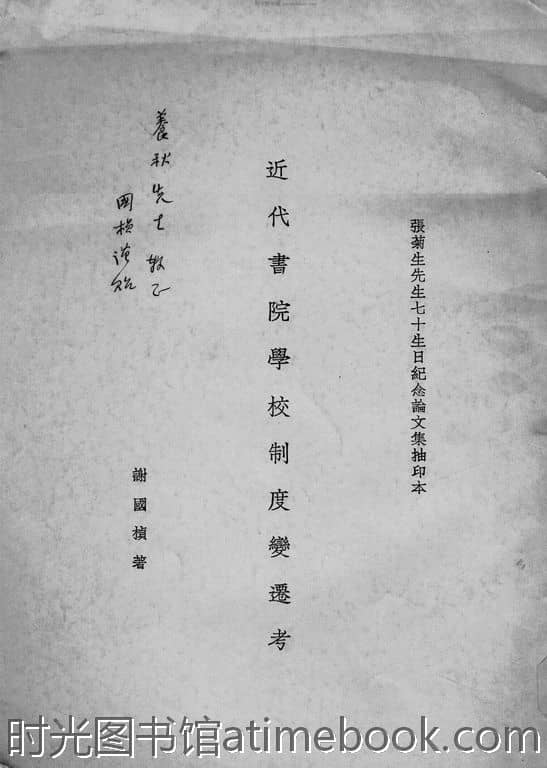 張菊生先生七十生日紀念論文集抽印本
近代書院學校制度變遷考
謝國楨著
養秋先生教正
國楨謹贻
时光图书馆atimebook.com